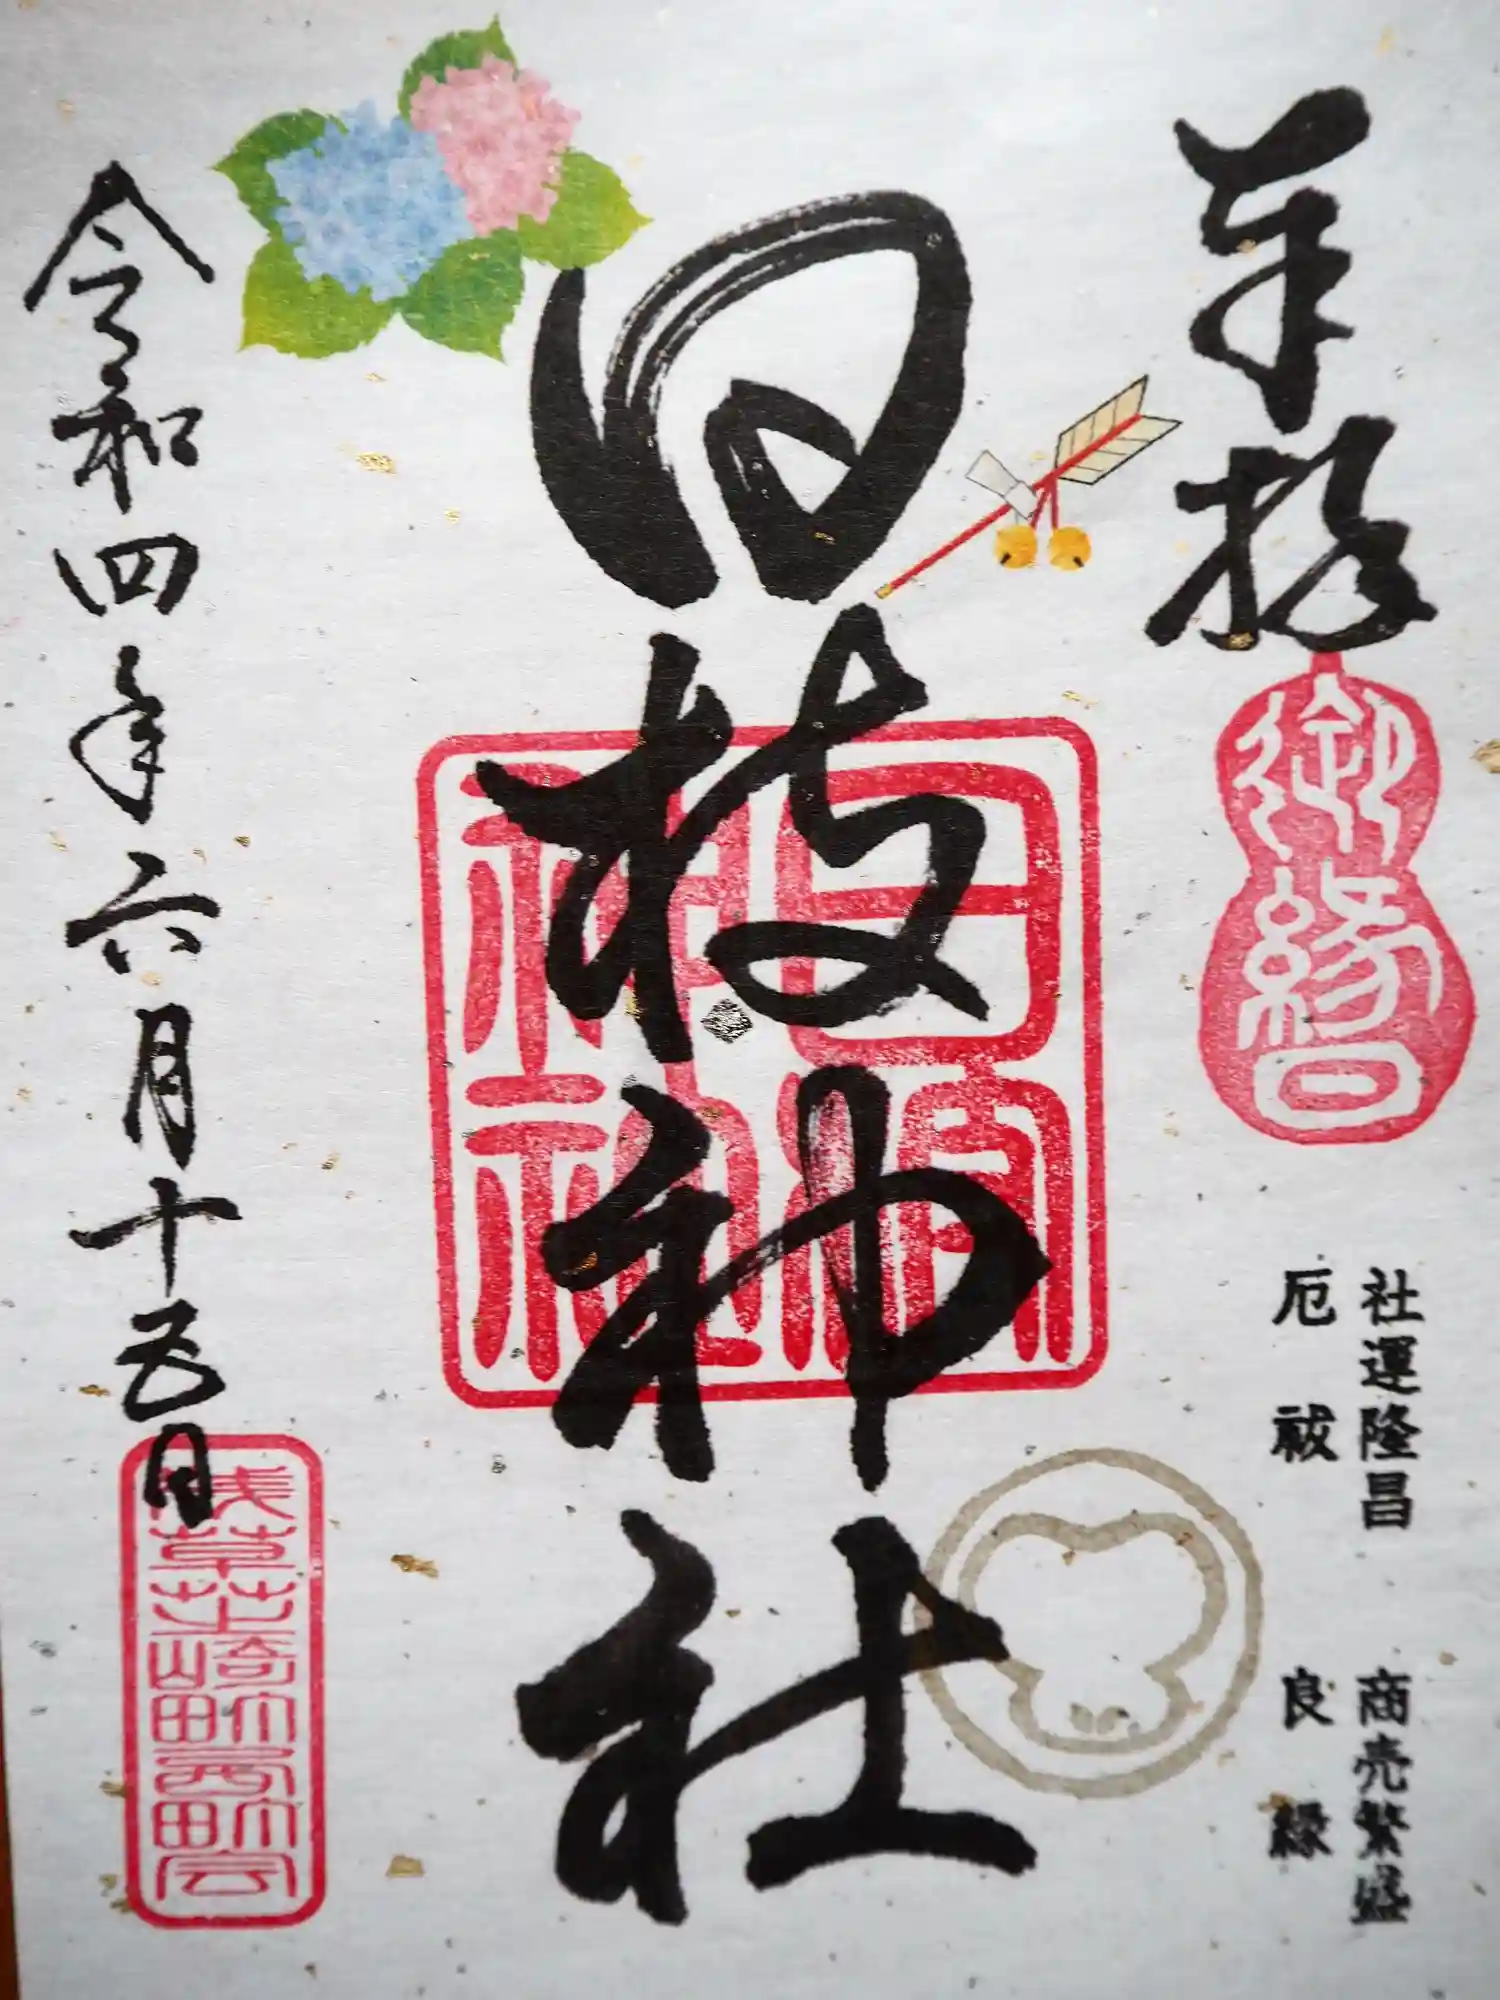 奉拝
御縁日
社運隆昌 商売繁盛
厄祓 良縁
日枝神社
令和四年六月十五日
浅草芝崎町西町会